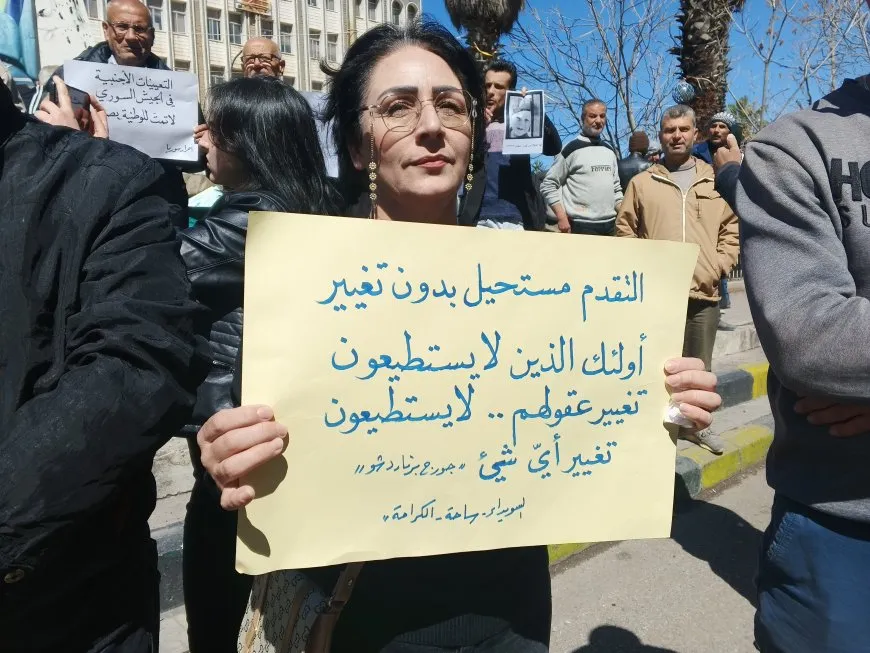 التعيينات الأجنبية
في الجيش السوري
لا تمتّ للوطنية بص
أحرار سوريا
التقدم مستحيل بدون تغيير
أولئك الذين لا يستطيعون
تغيير عقولهم .. لا يستطيعون
تغيير أيّ شيئ "جورج برنارد شو"
السويداء - ساحة - الكرامة"
HO